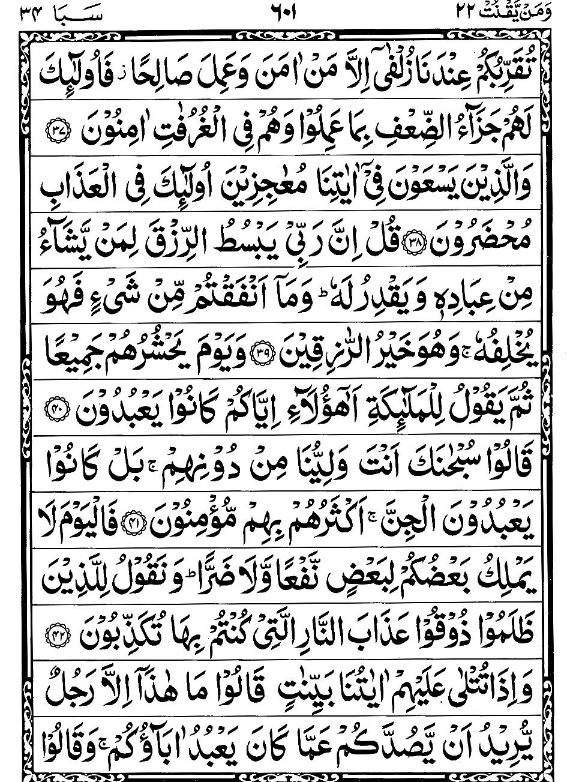 وَمَنْ يَّقْنُتْ ٢٢ ٦٠١ سَبَا ٣٤
تُقَرِّبُكُمْ عِنْدَنَا زُلْفٰۤى اِلَّا مَنْ اٰمَنَ وَعَمِلَ صَالِحًا ز فَاُولٰٓئِكَ
لَهُمْ جَزَآءُ الضِّعْفِ بِمَا عَمِلُوْا وَهُمْ فِى الْغُرُفٰتِ اٰمِنُوْنَ ﴿٣٧﴾
وَالَّذِيْنَ يَسْعَوْنَ فِىْۤ اٰيٰتِنَا مُعٰجِزِيْنَ اُولٰٓئِكَ فِى الْعَذَابِ
مُحْضَرُوْنَ ﴿٣٨﴾ قُلْ اِنَّ رَبِّىْ يَبْسُطُ الرِّزْقَ لِمَنْ يَّشَآءُ
مِنْ عِبَادِهٖ وَيَقْدِرُ لَهٗ ؕ وَمَاۤ اَنْفَقْتُمْ مِّنْ شَىْءٍ فَهُوَ
يُخْلِفُهٗ ۚ وَهُوَ خَيْرُ الرّٰزِقِيْنَ ﴿٣٩﴾ وَيَوْمَ يَحْشُرُهُمْ جَمِيْعًا
ثُمَّ يَقُوْلُ لِلْمَلٰٓئِكَةِ اَهٰٓؤُلَآءِ اِيَّاكُمْ كَانُوْا يَعْبُدُوْنَ ﴿٤٠﴾
قَالُوْا سُبْحٰنَكَ اَنْتَ وَلِيُّنَا مِنْ دُوْنِهِمْ ۚ بَلْ كَانُوْا
يَعْبُدُوْنَ الْجِنَّ ۚ اَكْثَرُهُمْ بِهِمْ مُّؤْمِنُوْنَ ﴿٤١﴾ فَالْيَوْمَ لَا
يَمْلِكُ بَعْضُكُمْ لِبَعْضٍ نَّفْعًا وَّلَا ضَرًّا ؕ وَنَقُوْلُ لِلَّذِيْنَ
ظَلَمُوْا ذُوْقُوْا عَذَابَ النَّارِ الَّتِىْ كُنْتُمْ بِهَا تُكَذِّبُوْنَ ﴿٤٢﴾
وَاِذَا تُتْلٰى عَلَيْهِمْ اٰيٰتُنَا بَيِّنٰتٍ قَالُوْا مَا هٰذَاۤ اِلَّا رَجُلٌ
يُّرِيْدُ اَنْ يَّصُدَّكُمْ عَمَّا كَانَ يَعْبُدُ اٰبَآؤُكُمْ ۚ وَقَالُوْا